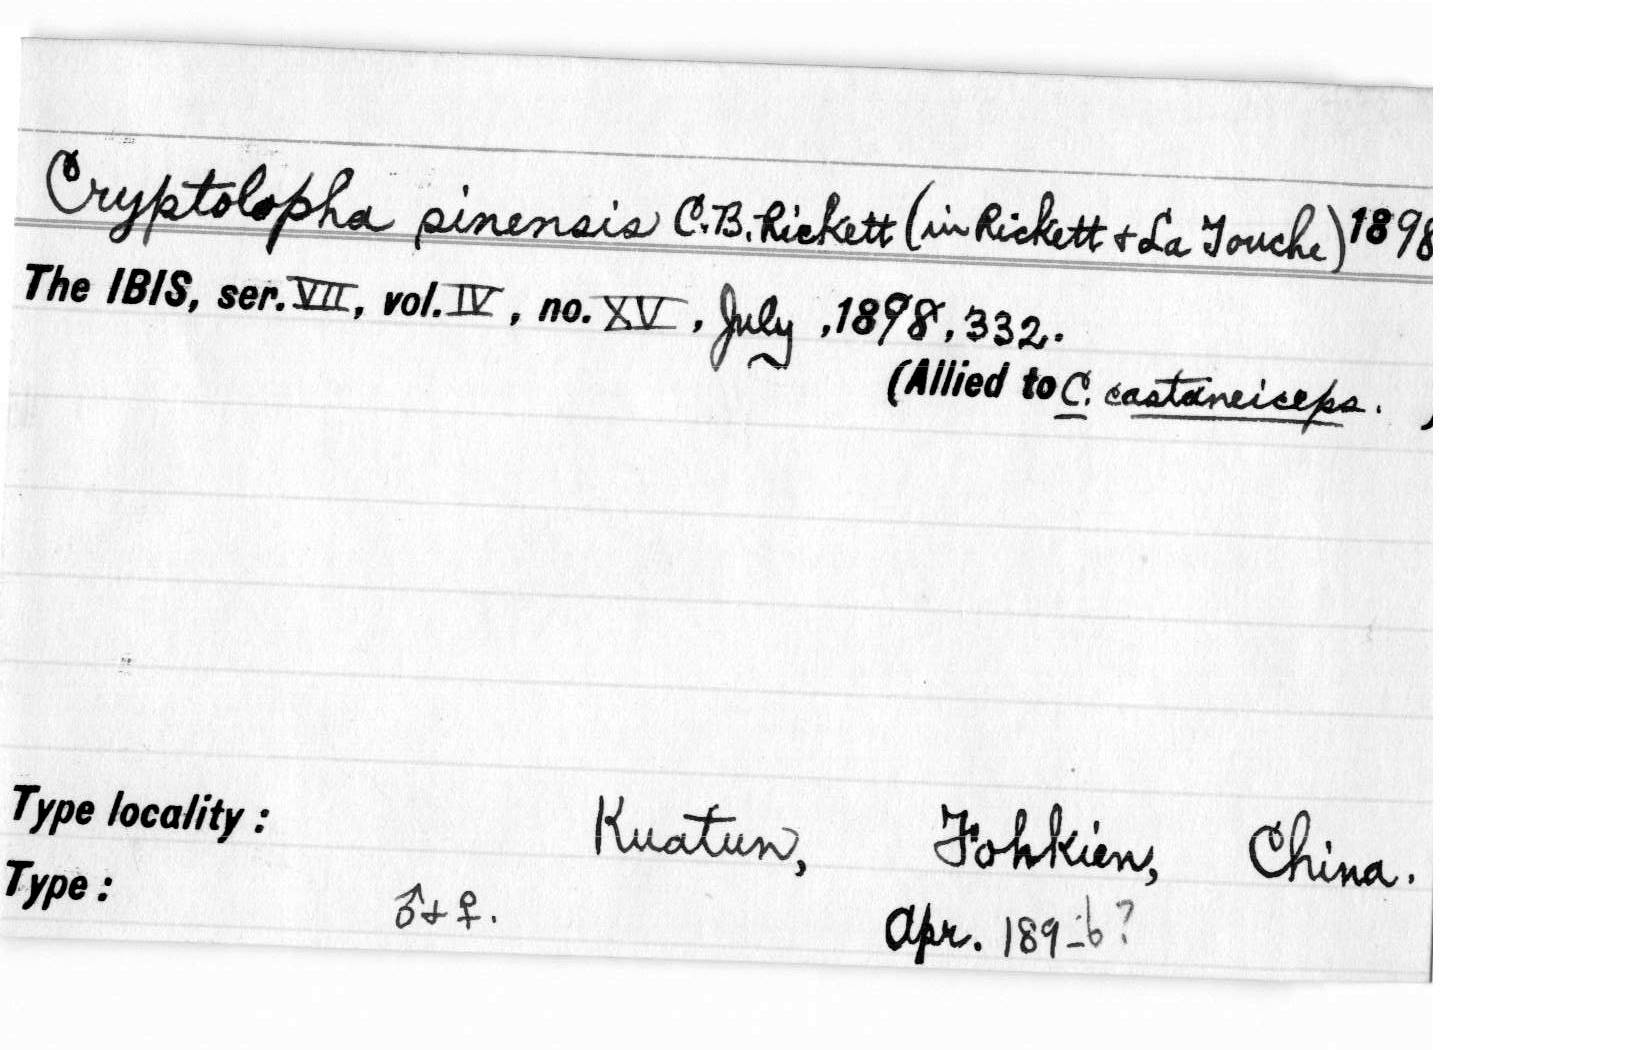 Cryptolopha sinensis C.B. Rickett (in Rickett + La Touche) 1898
The IBIS, ser. VII, vol. IV, no. XV, July, 1898, 332.
(Allied to C. castaneiceps. )
Type locality: Kuatun, Fohkien, China.
Type: ♂ + ♀. Apr. 189-6?